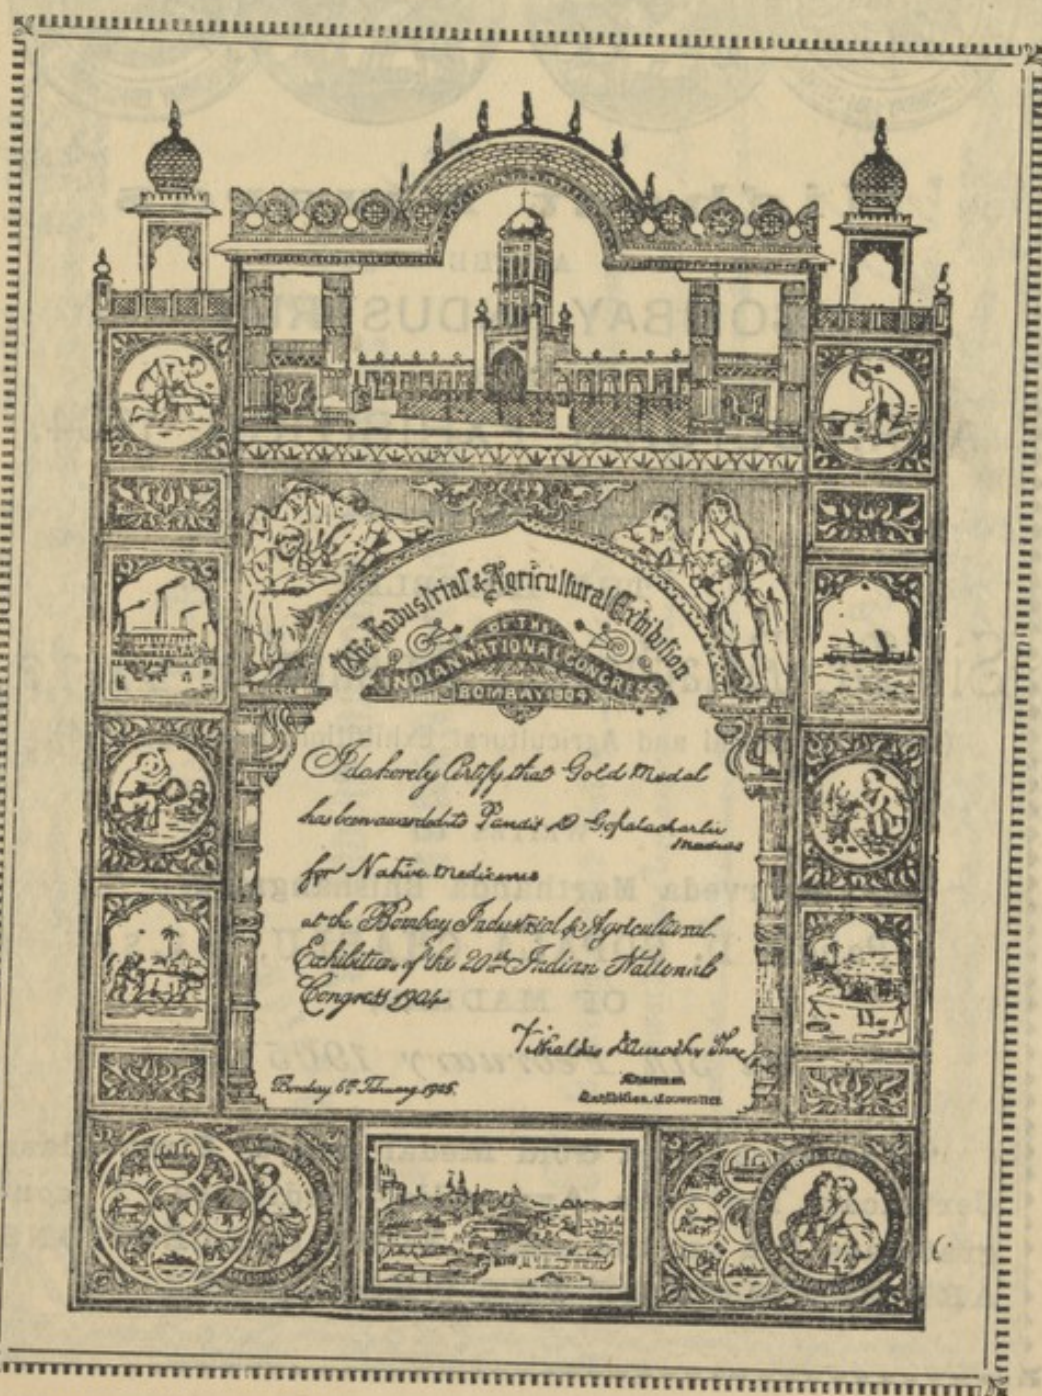 The Industrial & Agricultural Exhibition
OF THE
INDIAN NATIONAL CONGRESS
BOMBAY 1904
I do hereby Certify that Gold Medal
has been awarded to Pandit D Gopalacharlu
Madras
for Native Medicines
at the Bombay Industrial & Agricultural
Exhibition of the 20th Indian National
Congress 1904
Vithaldas Damodher
Chairman
Exhibition Committee
Bombay 6th February 1905.